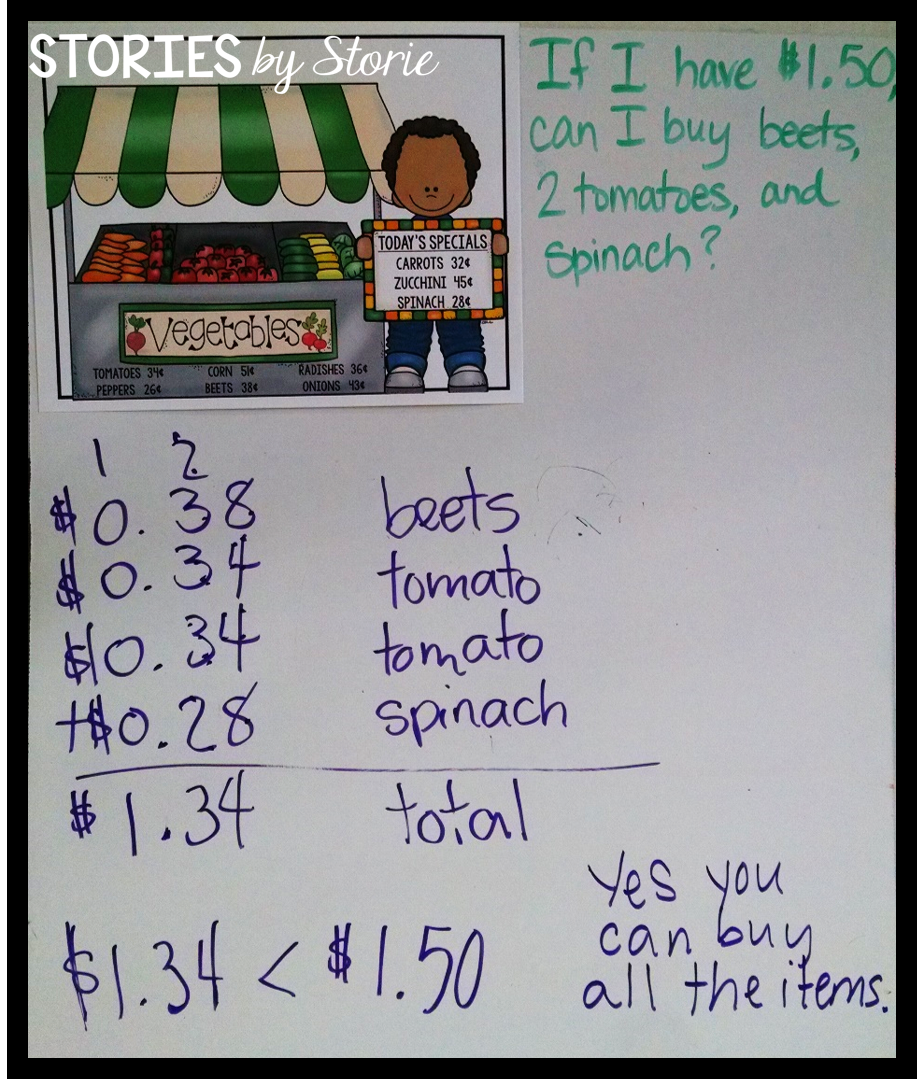 STORIES by Storie
If I have $1.50,
can I buy beets,
2 tomatoes, and
spinach?
TODAY'S SPECIALS
CARROTS 32¢
ZUCCHINI 45¢
SPINACH 28¢
Vegetables
TOMATOES 34¢ CORN 51¢ RADISHES 36¢
PEPPERS 26¢ BEETS 38¢ ONIONS 43¢
1 2
$0.38 beets
$0.34 tomato
$0.34 tomato
+$0.28 spinach
$1.34 total
$1.34 < $1.50
Yes you
can buy
all the items.